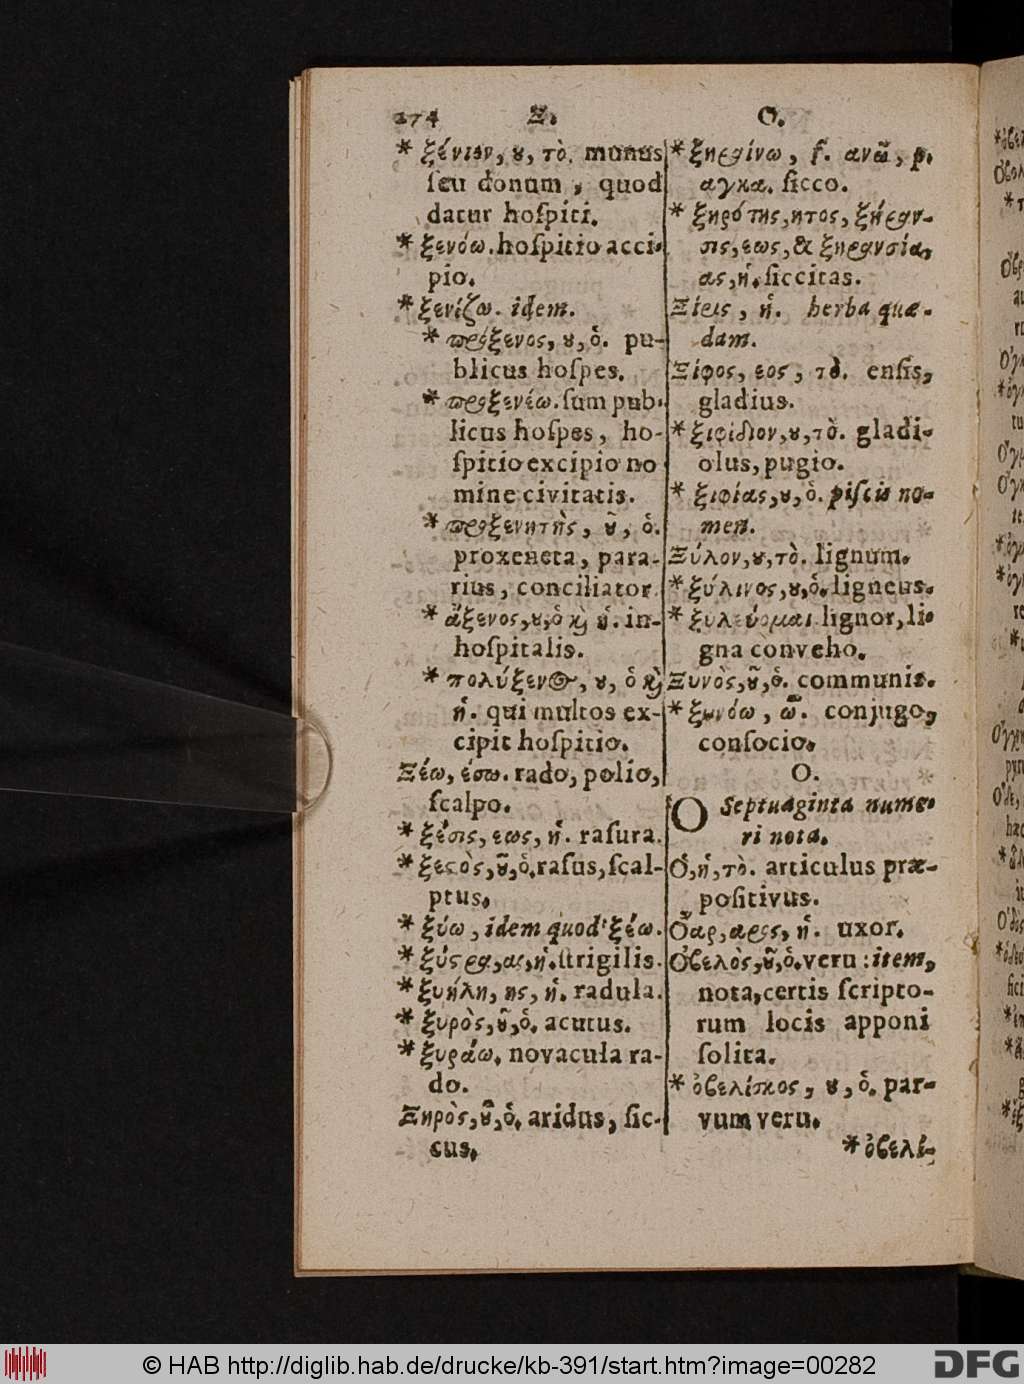 274 Ξ. Ο.
* ξένιον, ου, τὸ. munus
ſeu donum, quod
datur hoſpiti.
* ξενόω. hoſpitio acci-
pio.
* ξενίζω. idem.
* πρόξενος, ου, ὁ. pu-
blicus hoſpes.
* προξενέω. ſum pub-
licus hoſpes, ho-
ſpitio excipio no
mine civitatis.
* προξενητὴς, οῦ, ὁ.
proxeneta, para-
rius, conciliator
* ἄξενος, ου, ὁ καὶ ἡ. in-
hoſpitalis.
* πολύξενος, ου, ὁ καὶ
ἡ. qui multos ex-
cipit hoſpitio.
Ξέω, έσω. rado, polio,
ſcalpo.
* ξέσις, εως, ἡ. raſura.
* ξεστὸς, οῦ, ὁ. raſus, ſcal-
ptus.
* ξύω, idem quod ξέω.
* ξύστρα, ας, ἡ. ſtrigilis.
* ξυήλη, ης, ἡ. radula.
* ξυρὸς, οῦ, ὁ. acutus.
* ξυράω. novacula ra-
do.
Ξηρὸς, οῦ, ὁ. aridus, ſic-
cus.
* ξηραίνω, f. ανῶ, p.
αγκα. ſicco.
* ξηρότης, ητος, ξήραν-
σις, εως, & ξηρανσία,
ας, ἡ. ſiccitas.
Ξίρις, ἡ. herba quæ-
dam.
Ξίφος, εος, τὸ. enſis,
gladius.
* ξιφίδιον, ου, τὸ. gladi-
olus, pugio.
* ξιφίας, ου, ὁ. piſcis no-
men.
Ξύλον, ου, τὸ. lignum.
* ξύλινος, ου, ὁ. ligneus.
* ξυλεύομαι lignor, li-
gna conveho.
Ξυνὸς, οῦ, ὁ. communis.
* ξυνόω, ῶ. conjugo,
conſocio.
O.
O Septuaginta nume-
ri nota.
Ὁ, ἡ, τὸ. articulus præ-
poſitivus.
Ὄαρ, αρος, ἡ. uxor.
Ὀβελὸς, οῦ, ὁ. veru : item,
nota, certis ſcripto-
rum locis apponi
ſolita.
* ὀβελίσκος, ου, ὁ. par-
vum veru.
* ὀβελί-
© HAB http://diglib.hab.de/drucke/kb-391/start.htm?image=00282
DFG